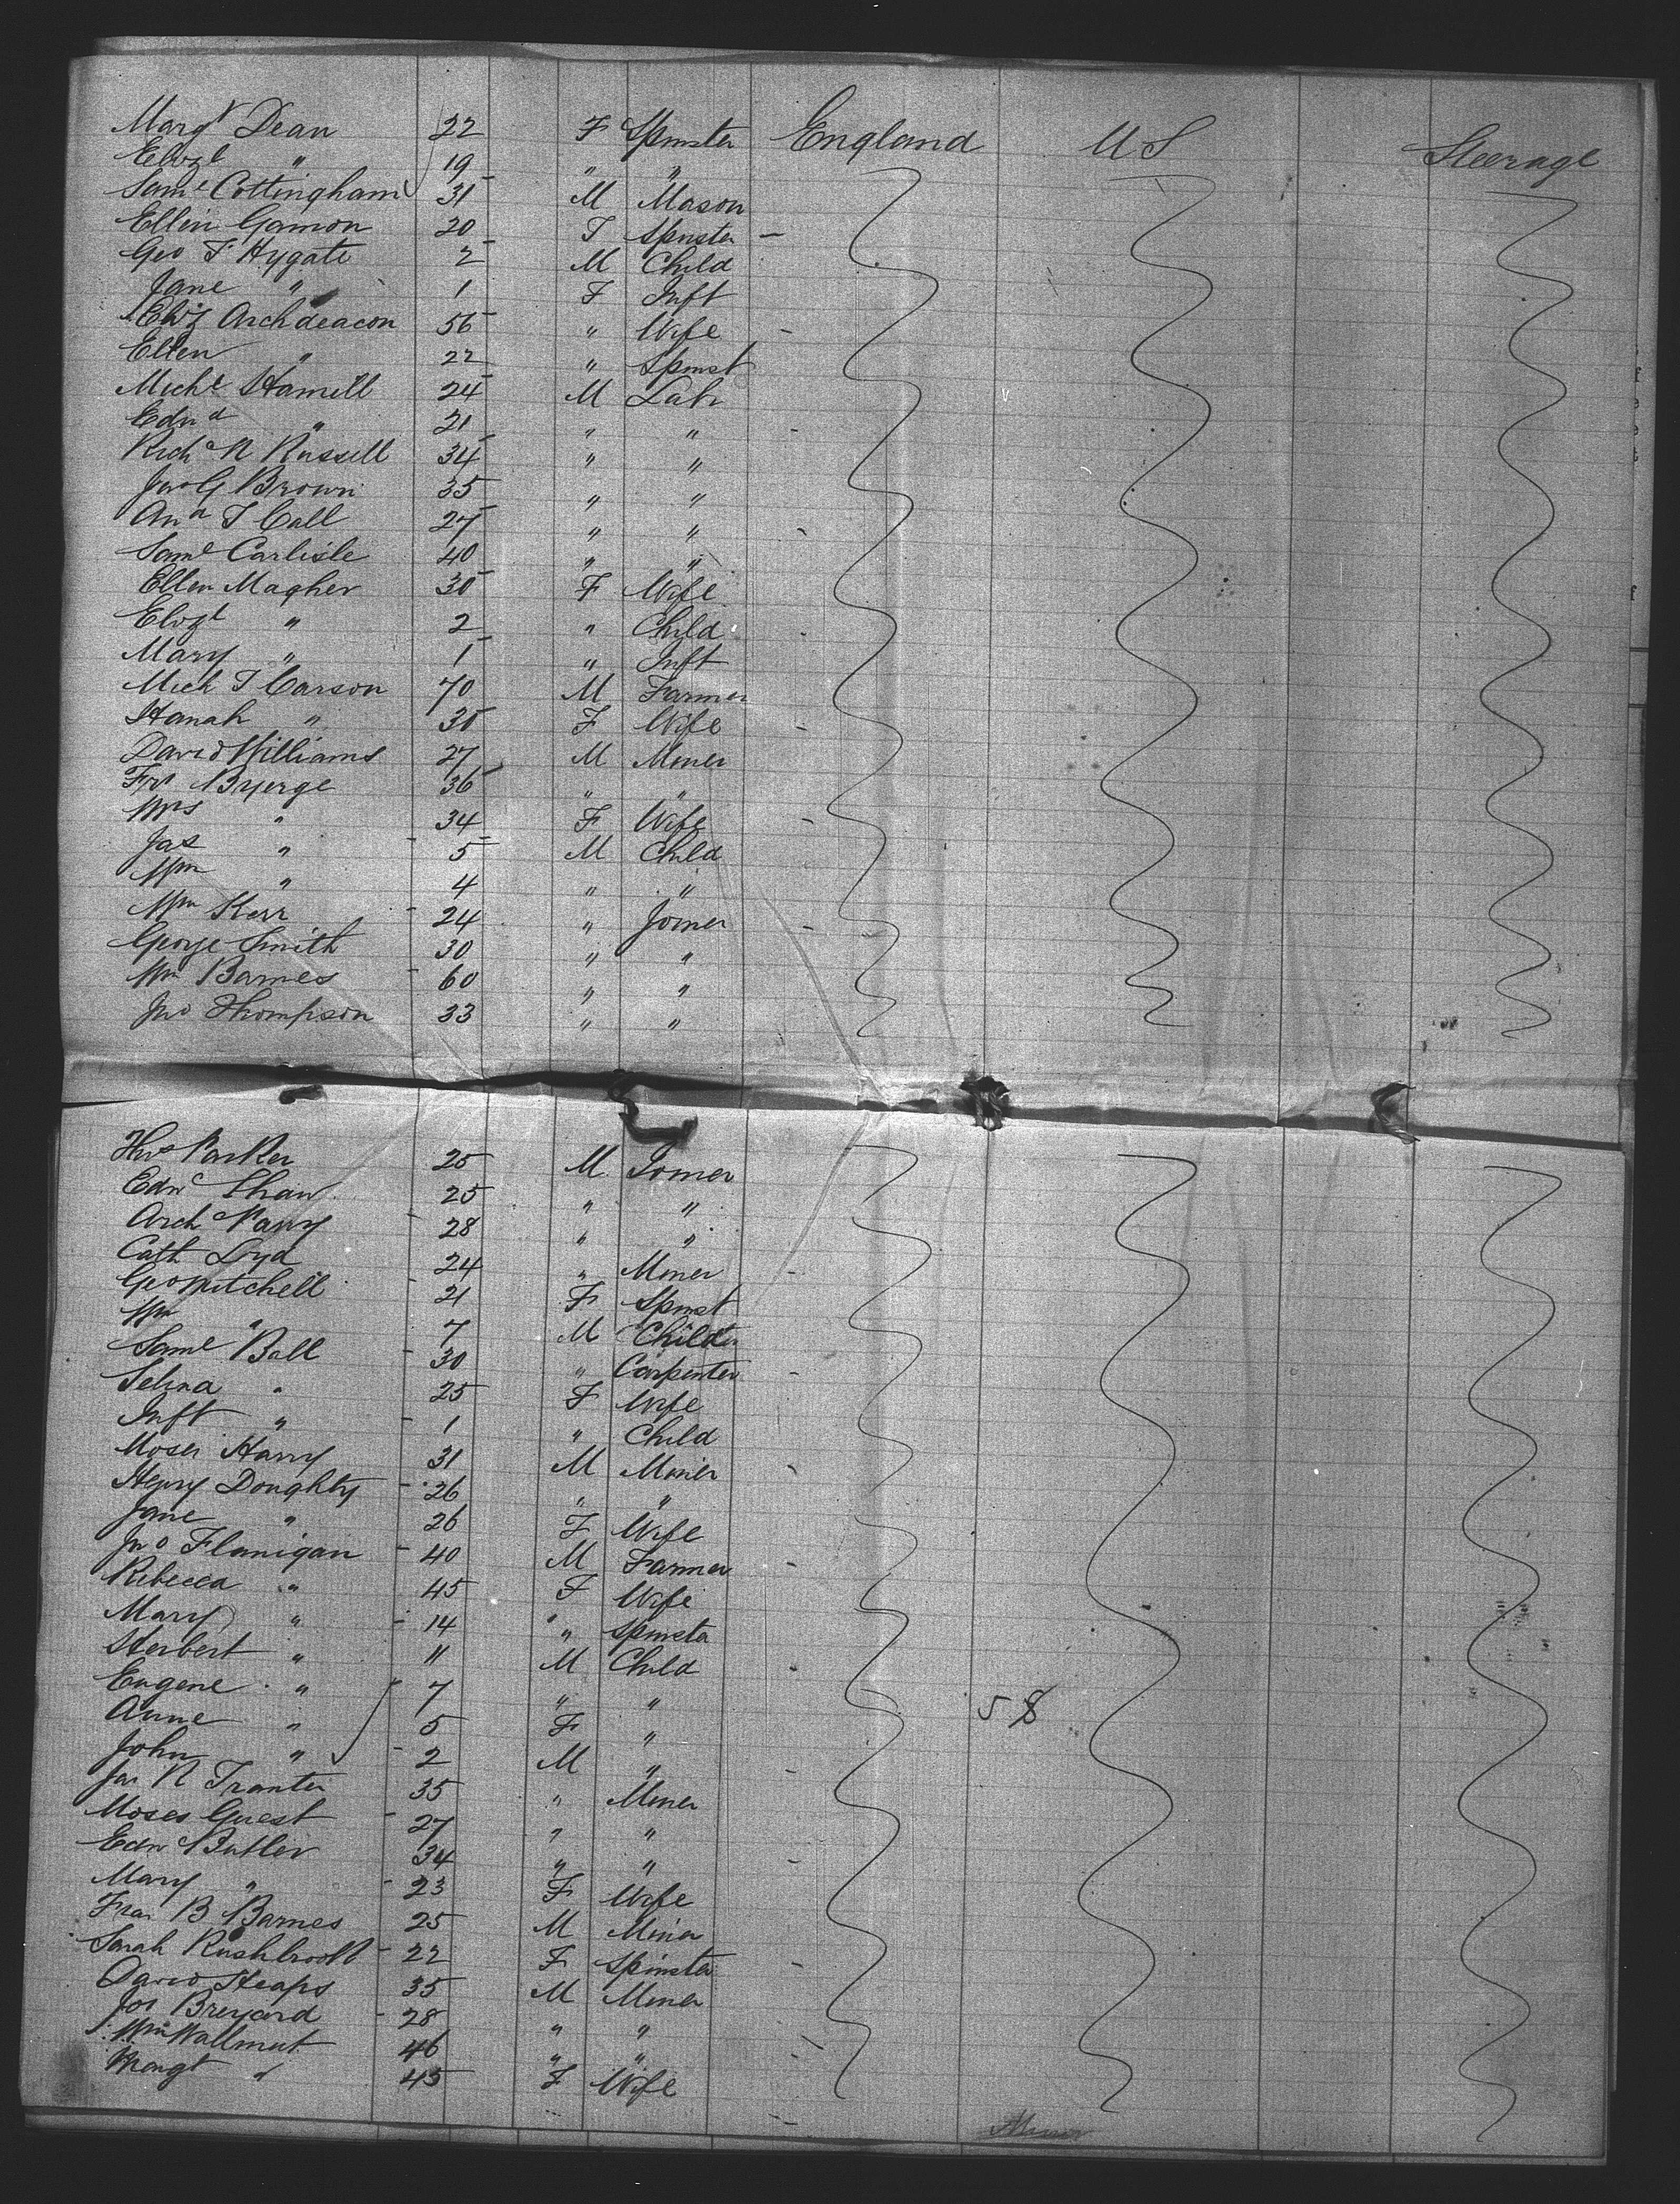 Margt Dean 22 F Spinster England US Steerage
Elizt " 19 " "
Saml Cottingham 31 M Mason
Ellen Gamon 20 F Spinster
Geo F Hygate 2 M Child
Jane " 1 F Inft
Eliz Archdeacon 56 " Wife
Ellen " 22 " Spinst
Michl Hamill 24 M Labr
Edwd " 21 " "
Richd R Russell 34 " "
Jno G Brown 35 " "
And T Call 27 " "
Saml Carlisle 40 " "
Ellen Magher 30 F Wife
Elizt " 2 " Child
Mary " 1 " Inft
Mich T Carson 70 M Farmer
Hanah " 35 F Wife
David Williams 27 M Miner
Frs Byerge 36 " "
Mrs " 34 F Wife
Jas " 5 M Child
Wm " 4 " "
Wm Kerr 24 " Joiner
George Smith 30 " "
Wm Barnes 60 " "
Jno Thompson 33 " "
Thos Parker 25 M Joiner
Edwd Shaw 25 " "
Archd Parry 28 " "
Cath Loyd 24 " Miner
Geo Mitchell 21 F Spinst
Wm " 7 M Child
Saml Ball 30 " Carpenter
Selina " 25 F Wife
Inft " 1 " Child
Moses Harry 31 M Miner
Henry Doughty 26 " "
Jane " 26 F Wife
Jno Flanigan 40 M Farmer
Rebecca " 45 F Wife
Mary " 14 " Spinster
Herbert " 11 M Child
Eugene " 7 " " 58
Anne " 5 F "
John " 2 M "
Jas R Tranter 35 " Miner
Moses Guest 27 " "
Edwd Butler 34 " "
Mary " 23 F Wife
Fras B Barnes 25 M Miner
Sarah Rushbrook 22 F Spinster
David Heaps 35 M Miner
Jos Brevard 28 " "
Wm Wallmut 46 " "
Margt " 45 F Wife